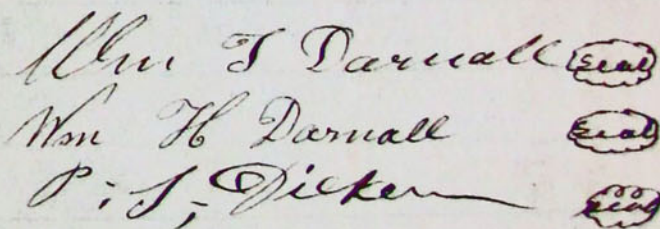 Wm T Darnall Seal
Wm H Darnall Seal
P. S. Dicken Seal